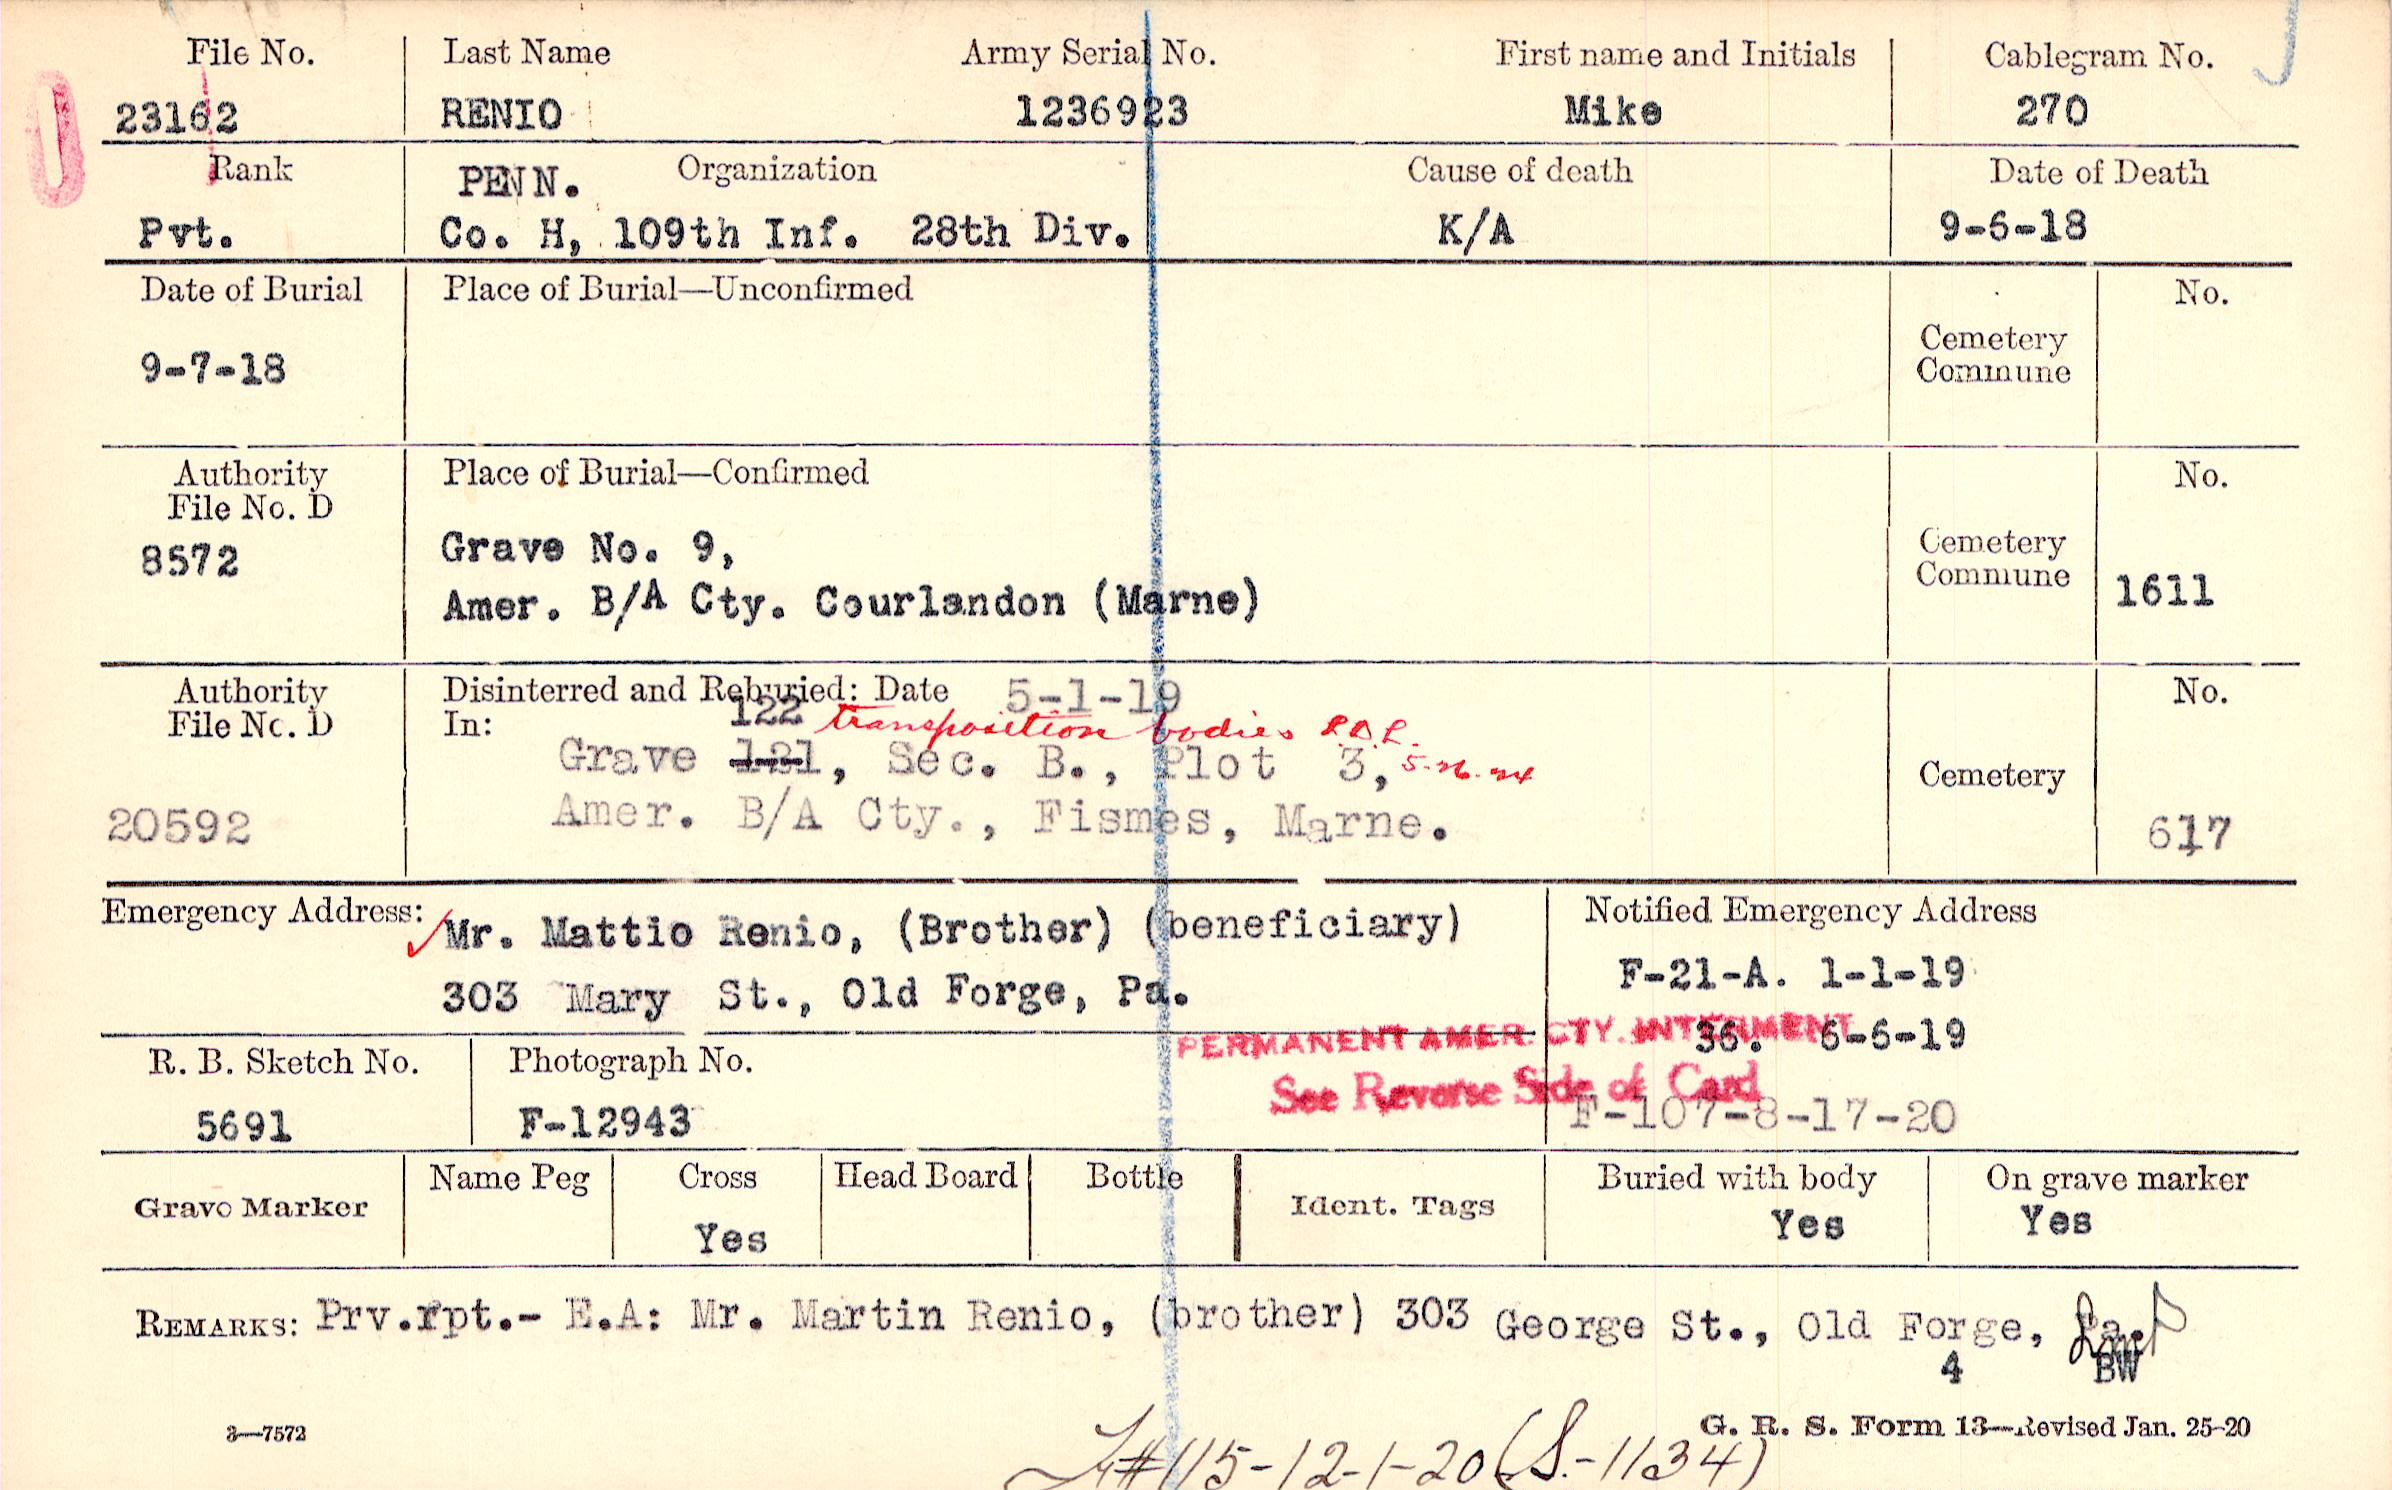 File No. Last Name Army Serial No. First name and Initials Cablegram No.
23162 RENIO 1236923 Mike 270
Rank PENN. Organization Cause of death Date of Death
Pvt. Co. H, 109th Inf. 28th Div. K/A 9-6-18
Date of Burial Place of Burial—Unconfirmed No.
Cemetery
Commune
9-7-18
Authority Place of Burial—Confirmed No.
File No. D
8572 Grave No. 9, Cemetery
Commune 1611
Amer. B/A Cty. Courlandon (Marne)
Authority Disinterred and Reburied: Date 5-1-19 No.
File No. D In: 122 transposition bodies
Grave 121, Sec. B., Plot 3, Cemetery
20592 Amer. B/A Cty., Fismes, Marne. 617
Emergency Address: Mr. Mattio Renio, (Brother) (beneficiary) Notified Emergency Address
303 Mary St., Old Forge, Pa. F-21-A. 1-1-19
PERMANENT AMER. CTY. INTERMENT 36. 6-6-19
R. B. Sketch No. Photograph No. See Reverse Side of Card
5691 F-12943 F-107-8-17-20
Grave Marker Name Peg Cross Head Board Bottle Ident. Tags Buried with body On grave marker
Yes Yes Yes
REMARKS: Prv.rpt.- E.A: Mr. Martin Renio, (brother) 303 George St., Old Forge, Pa.
4 BW
3—7572 G. R. S. Form 13—Revised Jan. 25-20
#115-12-1-20 (S.-1134)